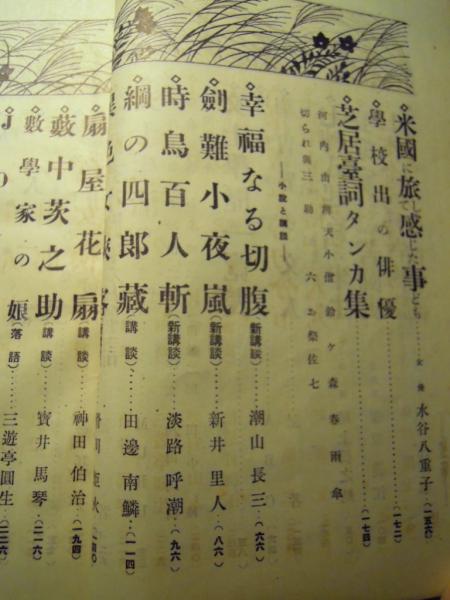 ◇米國に旅して感じた事ども……女優 水谷八重子(一五六)
◇學校出の俳優……(一七二)
◇芝居臺詞タンカ集……(一七四)
河内山 辨天小僧 鈴ヶ森 春雨傘
切られ與三 助六 お祭佐七
――小説と講談――
◇幸福なる切腹(新講談)……潮山長三(六六)
◇劍難小夜嵐(新講談)……新井里人(八六)
◇時鳥百人斬(新講談)……淡路呼潮(九六)
◇綱の四郎藏(講談)……田邊南鱗(一一四)
扇屋花扇(講談)……神田伯治(一九四)
藪中茨之助(講談)……寶井馬琴(二一六)
數學家の娘(落語)……三遊亭圓生(二三六)